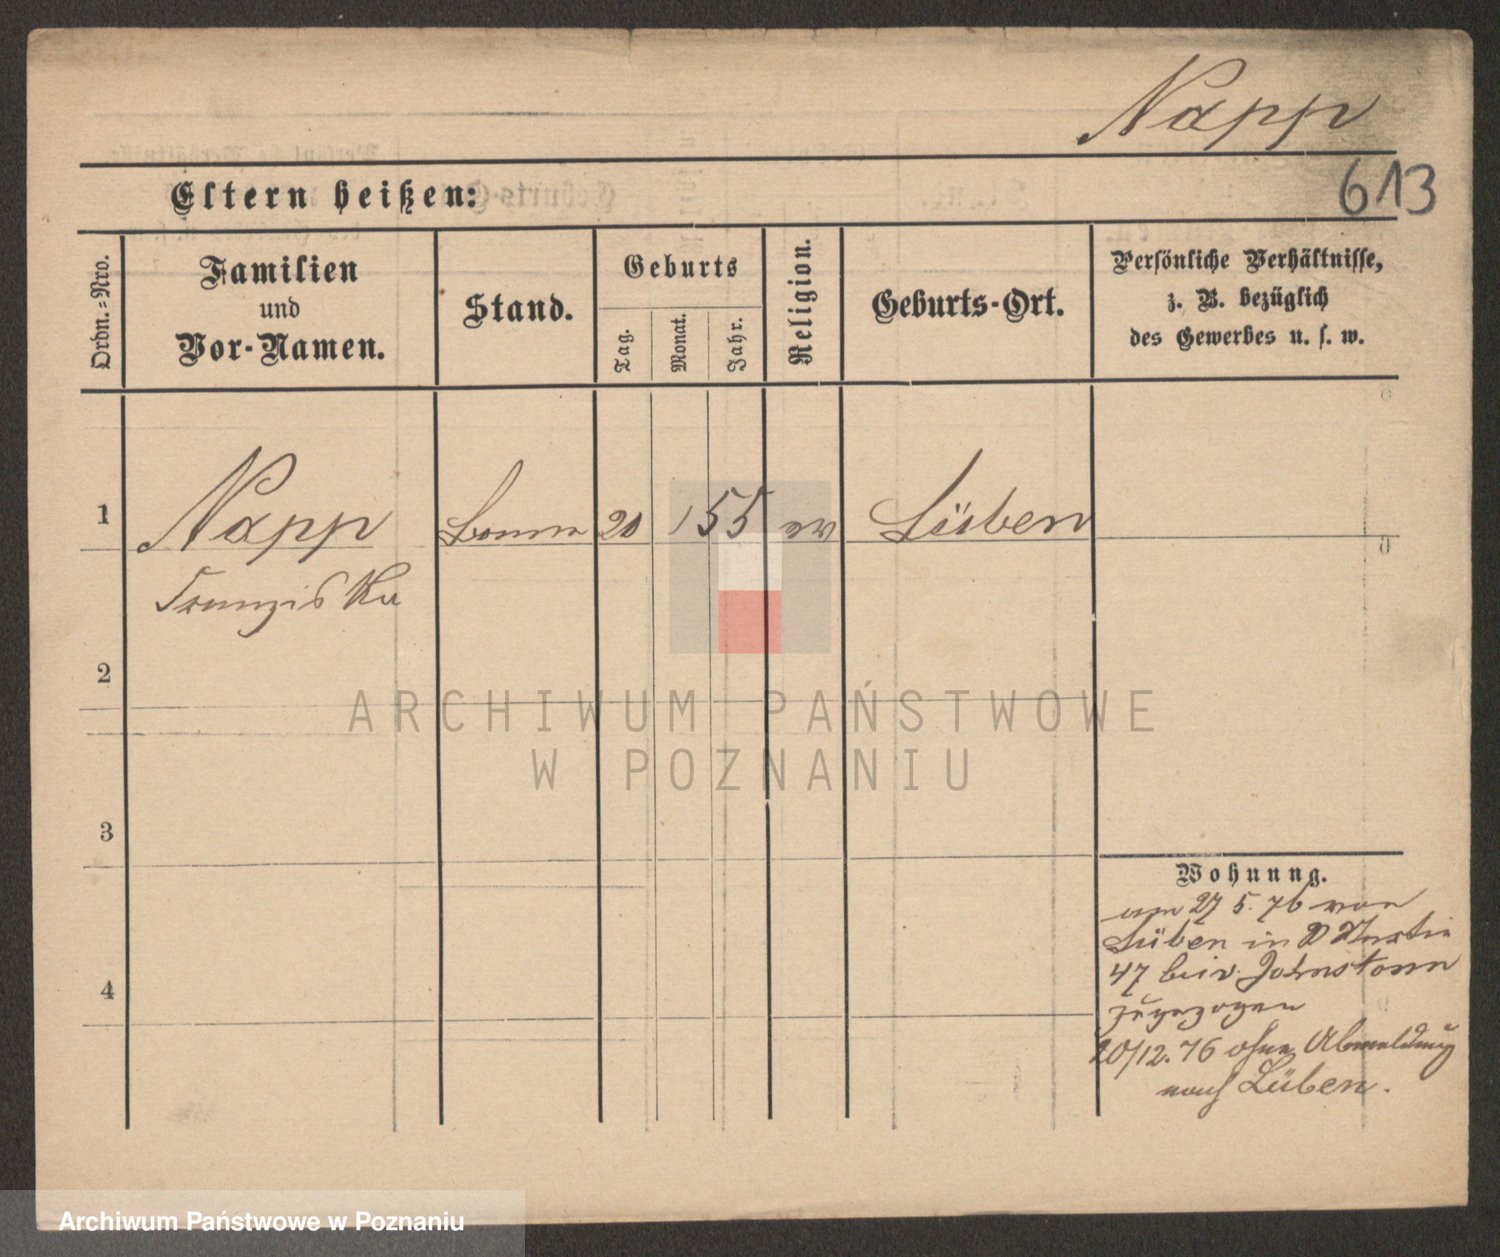 Napp
613
Eltern heißen:
Ordn.-Nro.
Familien
und
Vor-Namen.
Stand.
Geburts
Tag.
Monat.
Jahr.
Religion.
Geburts-Ort.
Persönliche Verhältnisse,
z. B. bezüglich
des Gewerbes u. s. w.
1 Napp Bonne 20 1 55 ev Lüben
Franziska
2
3
4
Wohnung.
am 27 5. 76 von
Lüben in St Martin
47 bei v. Johnston
zugezogen
20/12. 76 ohne Abmeldung
nach Lüben.
ARCHIWUM PAŃSTWOWE
W POZNANIU
Archiwum Państwowe w Poznaniu